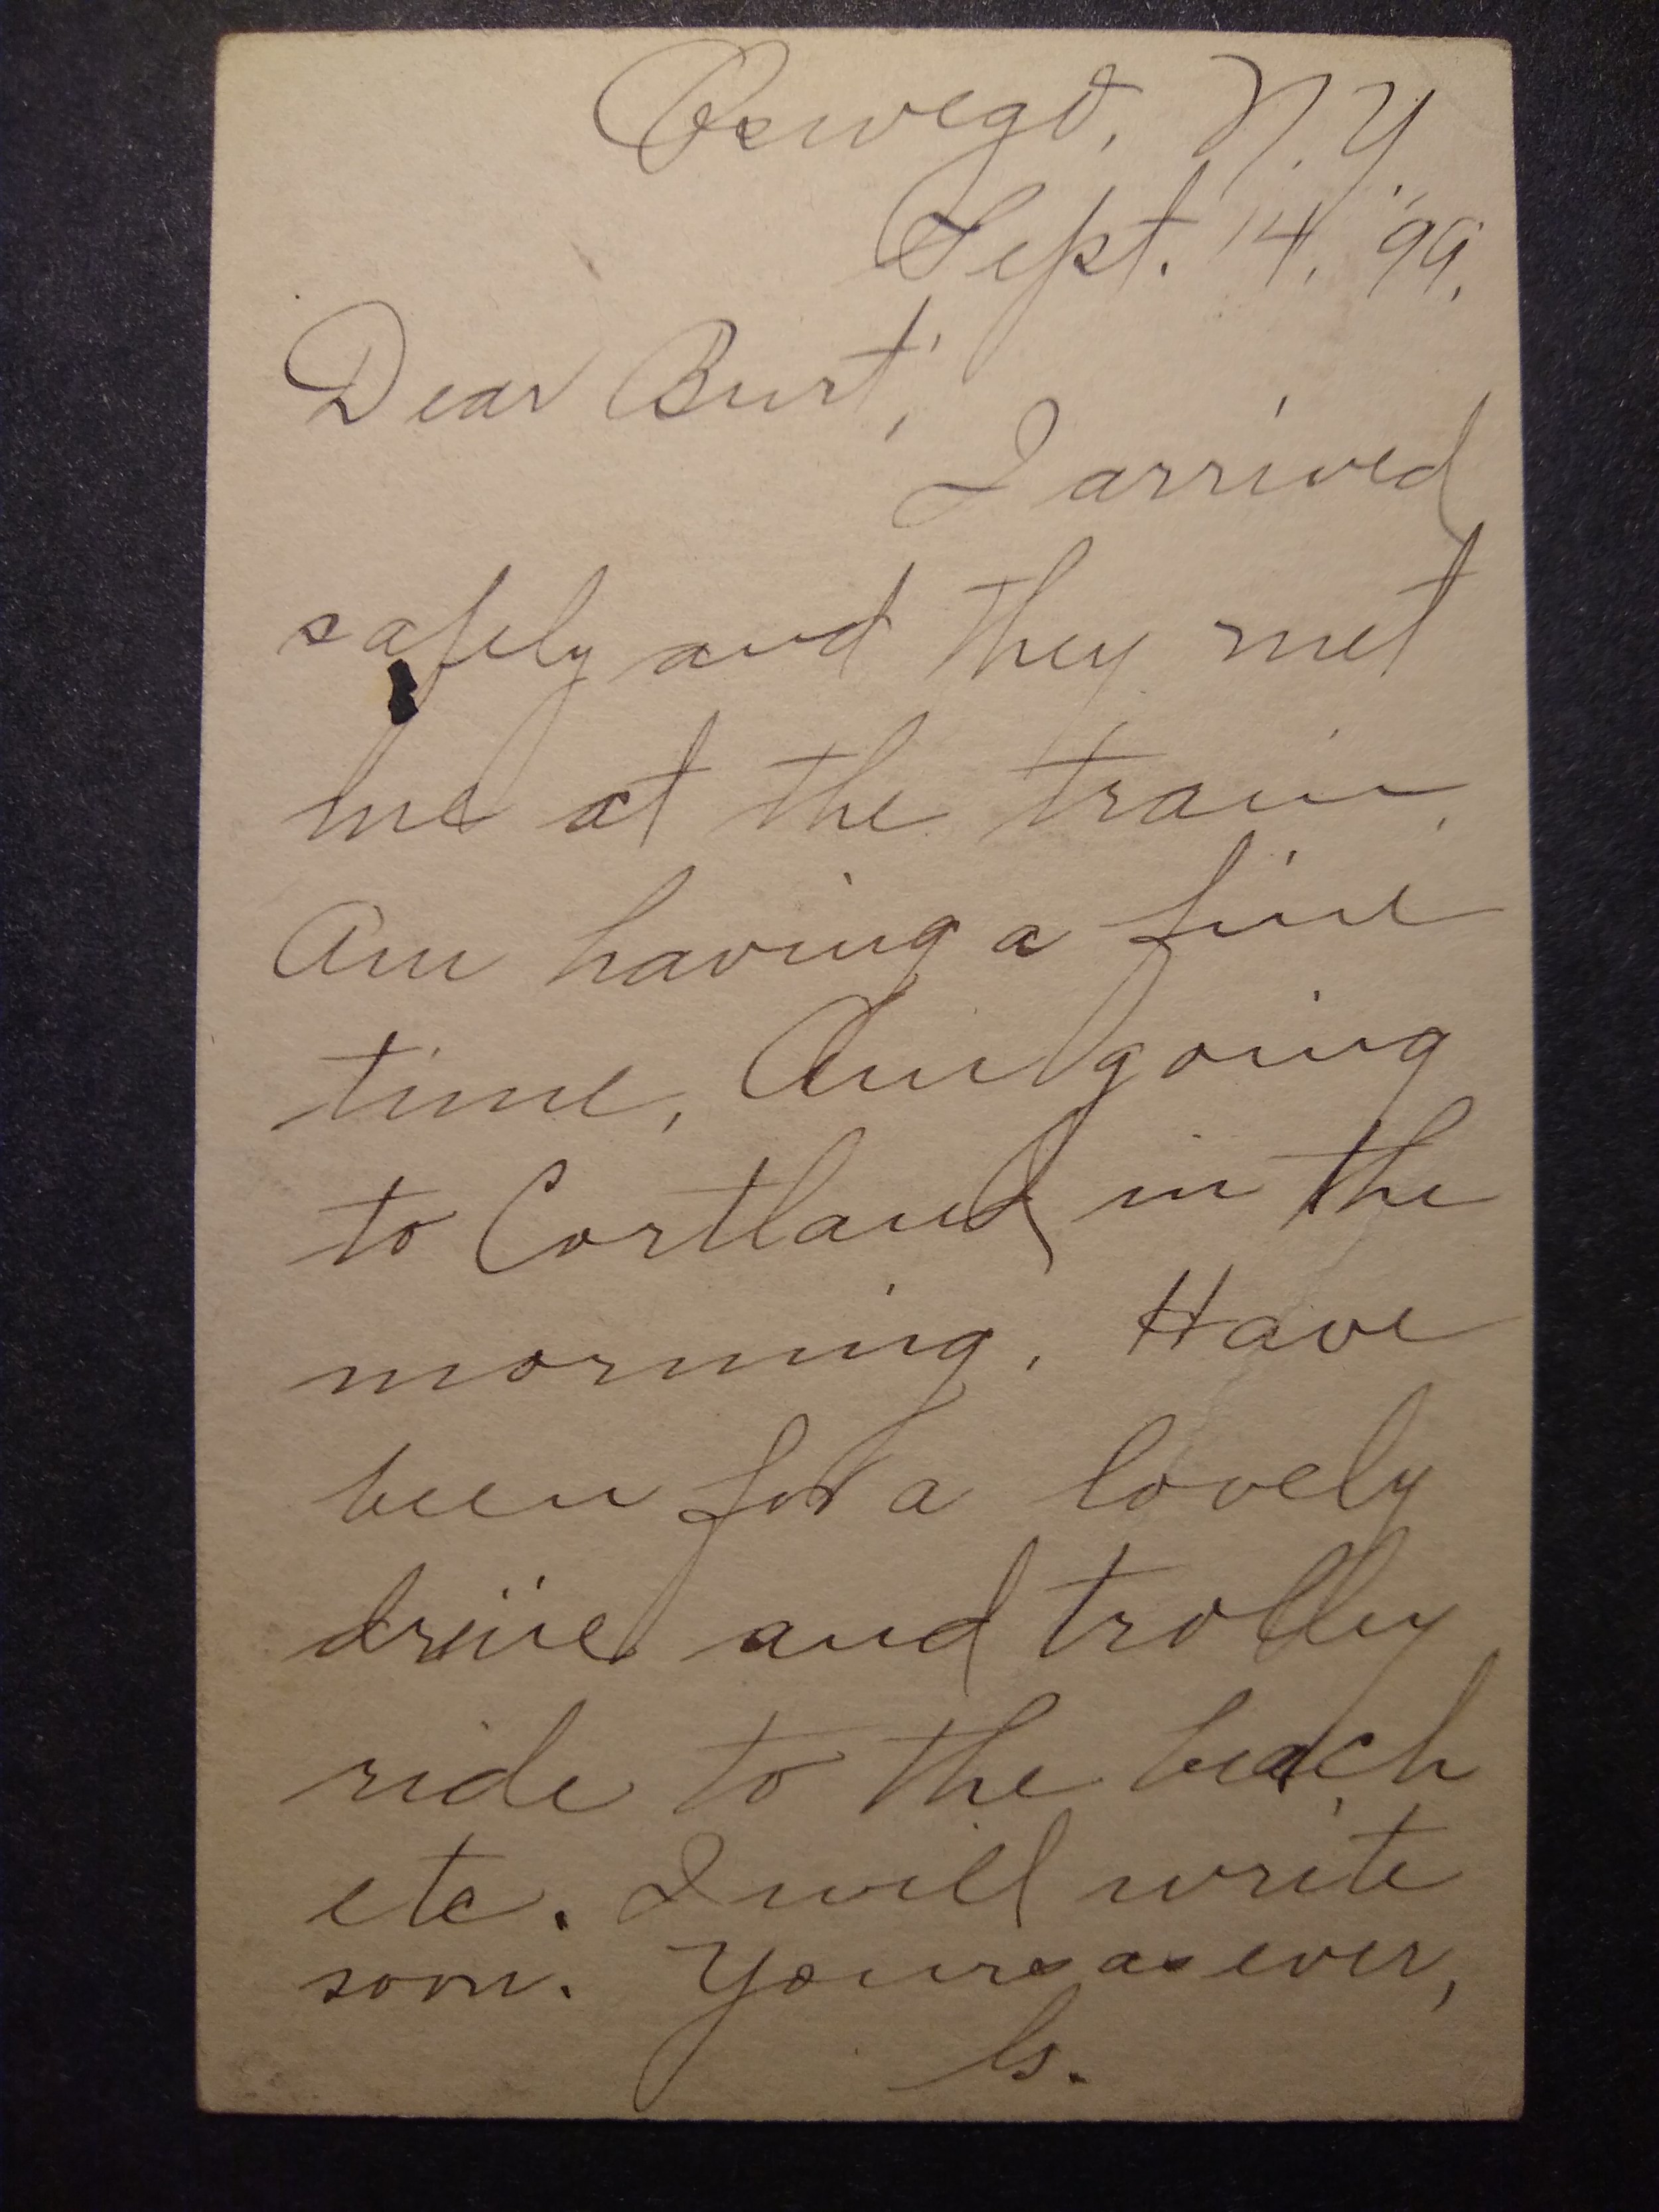 Oswego, N.Y.
Sept. 14, '99.
Dear Burt,
I arrived
safely and they met
me at the train.
Am having a fine
time. Am going
to Cortland in the
morning. Have
been for a lovely
drive and trolley
ride to the beach
etc. I will write
soon. Yours as ever,